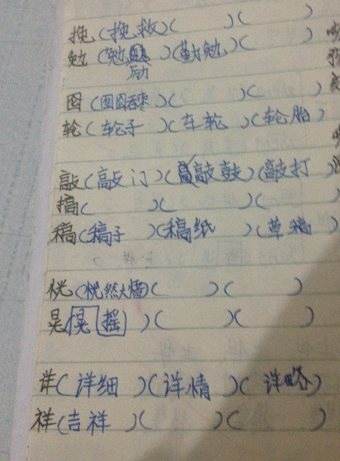 挽(挽救)(  )(  )
勉(勉励)(勤勉)(  )
囵(囫囵吞枣)(  )(  )
轮(轮子)(车轮)(轮胎)
敲(敲门)(敲鼓)(敲打)
搞(  )(  )(  )
稿(稿子)(稿纸)(草稿)
恍(恍然大悟)(  )(  )
晃(晃摇)(  )(  )
详(详细)(详情)(详略)
祥(吉祥)(  )(  )